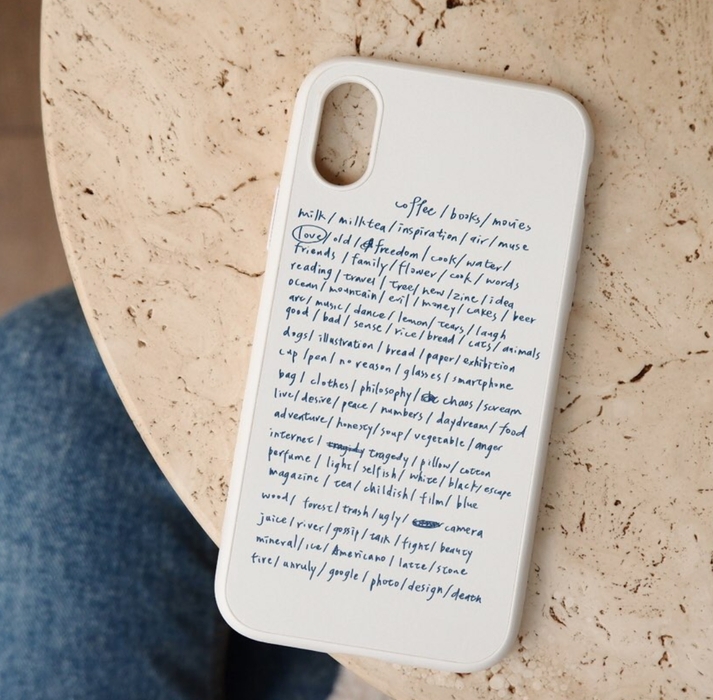 coffee / books / movies
milk / milktea / inspiration / air / muse
love / old / freedom / cook / water /
friends / family / flower / cook / words
reading / travel / tree / new / zine / idea
ocean / mountain / evil / money / cakes / beer
art / music / dance / lemon / tears / laugh
good / bad / sense / rice / bread / cats / animals
dogs / illustration / bread / paper / exhibition
cup / pen / no reason / glasses / smartphone
bag / clothes / philosophy / chaos / scream
live / desire / peace / numbers / daydream / food
adventure / honesty / soup / vegetable / anger
internet / tragedy / pillow / cotton
perfume / light / selfish / white / black / escape
magazine / tea / childish / film / blue
wood / forest / trash / ugly / camera
juice / river / gossip / talk / fight / beauty
mineral / ice / Americano / latte / stone
fire / unruly / google / photo / design / death